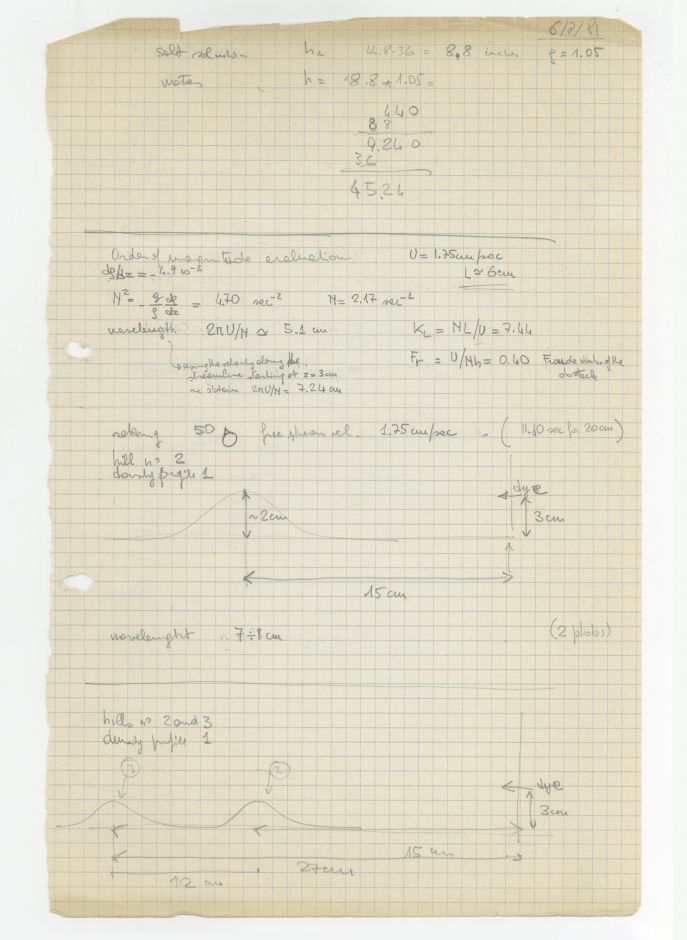 6/7/81
salt solution h= 44.8-36 = 8,8 inches ρ=1.05
water h= 18.8 * 1.05 =
440
88
9.240
36
45.24
Order of magnitude evaluation U= 1.75cm/sec
dρ/dz = -4.9 10⁻³ L≃6cm
N² = - g/ρ dρ/dz = 4.70 sec⁻² N= 2.17 sec⁻¹
wavelength 2πU/N ≃ 5.1 cm K_L = NL/U = 7.44
using the velocity along the Fr = U/Nh = 0.40 Froude number of the
streamline starting at z=3cm obstacle
we obtain 2πU/N = 7.24 cm
setting 50 free stream vel. 1.75cm/sec (11.40 sec for 20cm)
hill n° 2
density profile 1
dye
~2cm
3cm
15cm
wavelenght ~ 7÷8cm (2 photos)
hills n° 2 and 3
density profile 1
3 2
dye
3cm
15cm
27cm
12 cm